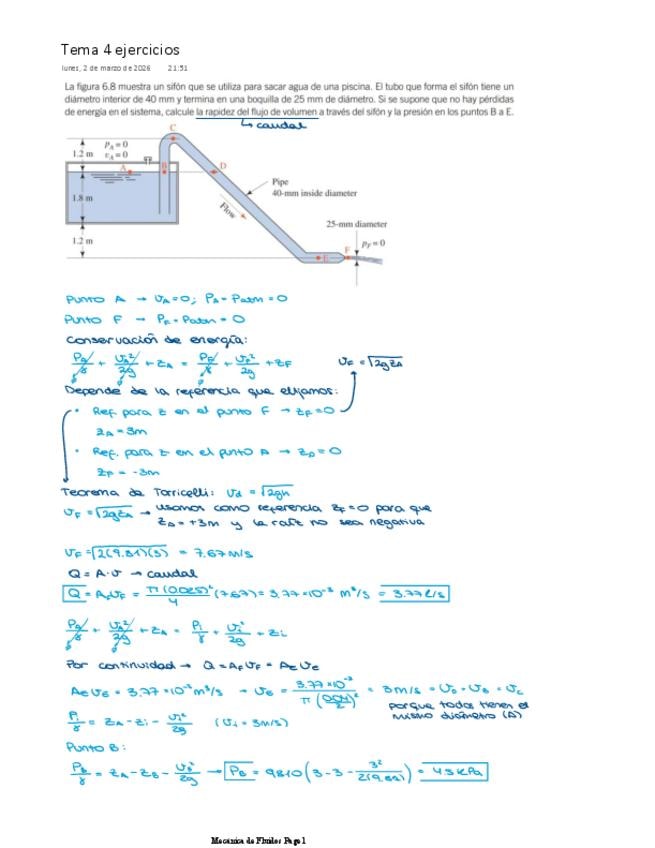 Tema 4 ejercicios
lunes, 2 de marzo de 2026 21:51
La figura 6.8 muestra un sifón que se utiliza para sacar agua de una piscina. El tubo que forma el sifón tiene un
diámetro interior de 40 mm y termina en una boquilla de 25 mm de diámetro. Si se supone que no hay pérdidas
de energía en el sistema, calcule la rapidez del flujo de volumen a través del sifón y la presión en los puntos B a E.
↳ caudal
C
1.2 m
p_A = 0
v_A = 0
A
B
D
1.8 m
Pipe
40-mm inside diameter
Flow
25-mm diameter
1.2 m
E
F
p_F = 0
Punto A → v_A = 0; P_A = Patm = 0
Punto F → P_F = Patm = 0
Conservación de energía:
P_A/γ + v_A²/2g + z_A = P_F/γ + v_F²/2g + z_F
v_F = √2gz_A
Depende de la referencia que elijamos:
• Ref. para z en el punto F → z_F = 0
z_A = 3m
• Ref. para z en el punto A → z_A = 0
z_F = -3m
Teorema de Torricelli: v_d = √2gh
v_F = √2gz_A → usamos como referencia z_F = 0 para que
z_A = +3m y la raíz no sea negativa
v_F = √2(9.81)(3) = 7.67 m/s
Q = A·v → caudal
Q = A_F v_F = π(0.025)²/4 (7.67) = 3.77×10⁻³ m³/s = 3.77 L/s
P_A/γ + v_A²/2g + z_A = P_i/γ + v_i²/2g + z_i
Por continuidad → Q = A_F v_F = A_E v_E
A_E v_E = 3.77×10⁻³ m³/s → v_E = 3.77×10⁻³/π(0.04/2)² = 3 m/s = v_D = v_B = v_C
porque todos tienen el
mismo diámetro (A)
P_i/γ = z_A - z_i - v_i²/2g (v_i = 3m/s)
Punto B:
P_B/γ = z_A - z_B - v_B²/2g → P_B = 9810(3 - 3 - 3²/2(9.81)) = -4.5 kPa
Mecánica de Fluidos Page 1